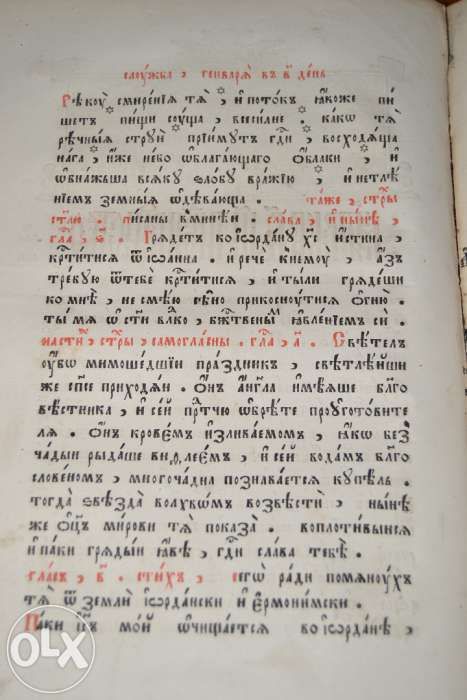 слꙋжба , генварѧ въ в҃ день
Рѣкꙋ смиренїѧ тѧ , и҆ потокъ ꙗ҆коже пи
шетъ пищи сꙋща , всесилне . како тѧ
рѣчныѧ стрꙋи прїимꙋт гд҇и , восходѧща
нага , и҆же небо ѡ҆влагающаго ѻ҆блаки , и҆
ѡ҆бнажьша всѧкꙋ ѕлобꙋ вражїю , и҆ нетлѣ
нїемъ земныѧ ѡ҆дѣвающа . таже , стры
стлю . писаны вминеи . слава , и҆ нынѣ ,
гла , ѕ҃ . Грѧдетъ ко і҆ѻрданꙋ хс҇ и҆стина ,
крт҇итисѧ ѿ і҆ѡанна . и҆ рече кнемꙋ , а҆зъ
требꙋю ѿтебе крт҇итисѧ , и҆ тыли грѧдеши
ко мнѣ , не смѣю сѣно прикоснꙋтисѧ ѻ҆гню .
ты мѧ ѡ҆ст҇и влк҇о , бж҇твены ꙗ҆вленїемъ си .
настих , стры , самогласны . гла , а҃ . Свѣтелъ
ꙋ҆бѡ мимошедшїи праздникъ , свѣтлѣйши
же сп҇се приходѧи . Ѻ҆нъ а҆нгл҇а и҆мѣѧше бл҇го
вѣстника , и҆ сей пр҇тчю ѡ҆брѣте проꙋготовите
лѧ . Ѻ҆нъ кровемъ и҆зливаемомъ , ꙗ҆кѡ без
чадьнъ рыдаше виѳлеемъ , и҆ сей водамъ бл҇го
словеномъ , многочадна познаваетсѧ кꙋпѣль .
тогда ѕвѣзда волхвѡмъ возвѣсти , нынѣ
же ѻ҆ц҃ъ мирови тѧ показа . воплотивыисѧ
и҆ паки грѧдыи ꙗ҆вѣ , гд҇и слава тебѣ .
гласъ , в҃ . стихъ , сегѡ ради помѧнꙋхъ
тѧ ѿ земли і҆ѻрдански и҆ е҆рмонимски .
Паки і҆с҃ъ мой ѡ҆чищаетсѧ во і҆ѻрданѣ ,
OLX